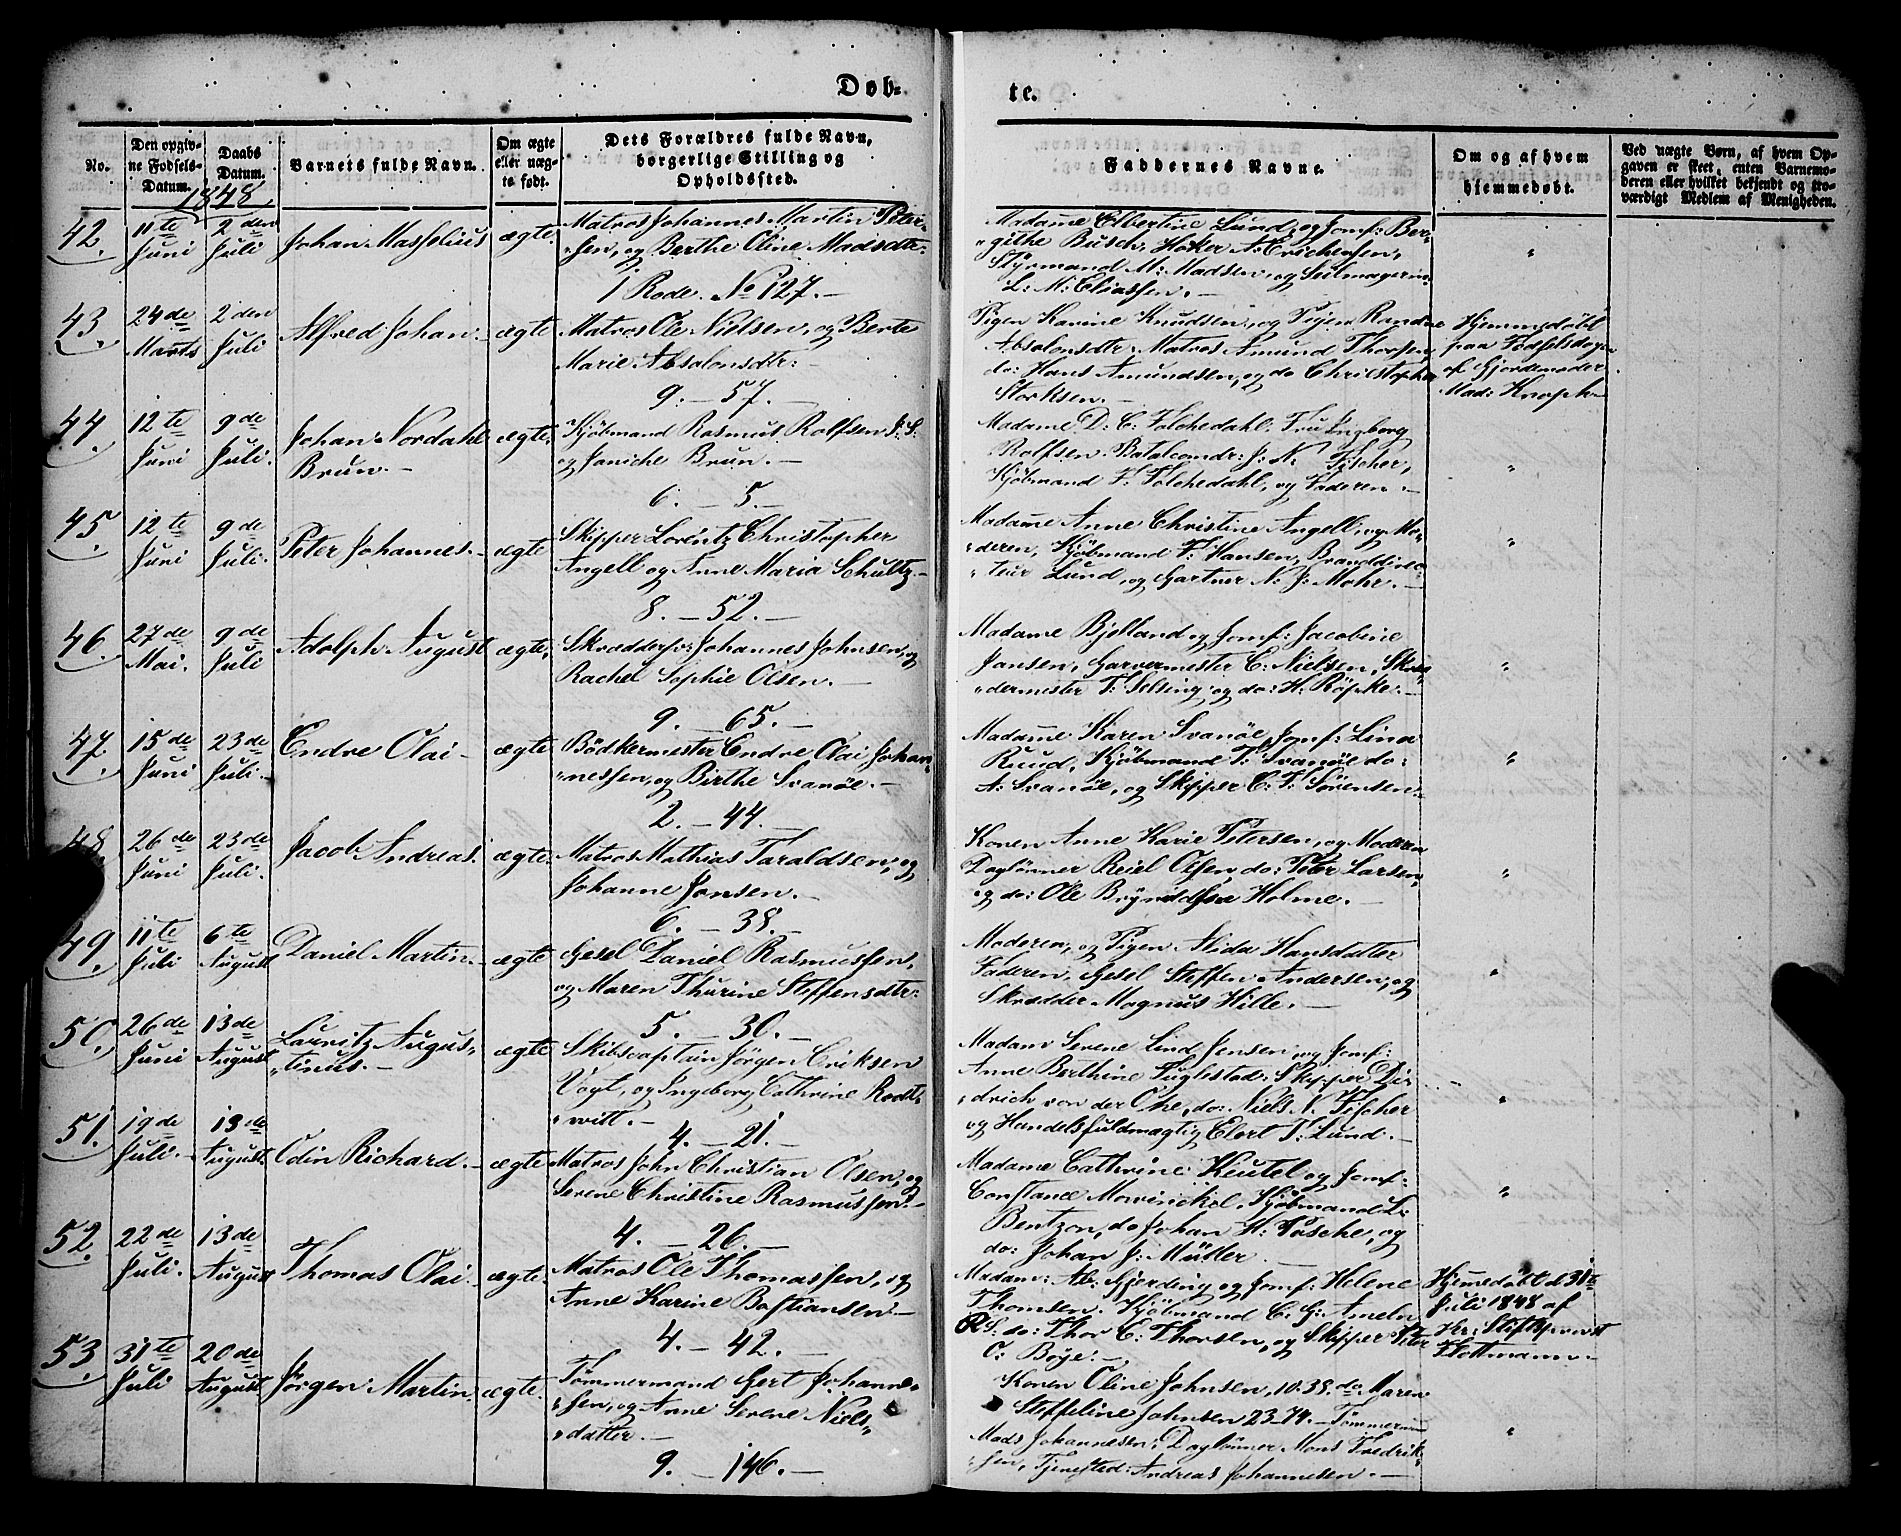 Døb=
te.
No.
Den opgiv=
ne Fødsels=
Datum.
Daabs
Datum.
Barnets fulde Navn.
Om ægte
eller uæg=
te født.
Dets Forældres fulde Navn,
borgerlige Stilling og
Opholdssted.
Faddernes Navne.
Om og af hvem
hjemmedøbt.
Ved uægte Børn, af hvem Op=
gaven er skeet, enten Barnemo=
deren eller hvilket bekjendt og tro=
værdigt Medlem af Menigheden.
1848
42. 11te Juni 2den Juli Johan Masselius ægte
Matros Johannes Martin Peter-
sen, og Berthe Oline Madsdtr:
1 Rode. No 127.
Madame Elbertine Lund, og Jomf: Ber-
githe Busch, Høker A: Erichsen,
Styrmand M: Madsen, og Seilmagerm:
L: M: Eliassen.
"
43. 24de Marts 2den Juli Alfred Johan ægte
Matros Ole Nielsen, og Berte
Marie Absalonsdtr:
9. - 57.
Pigen Karine Knudsen, og Pigen Randine
Absalonsdtr: Matros Amund Thorsen,
do: Hans Amundsen, og do Christopher
Storksen.
Hjemmedøbt
paa Fødselsdagen
af Gjordemoder
Mad: Knoph
44. 12te Juni 9de Juli Johan Nordahl
Brun. ægte
Kjøbmand Rasmus Rolfsen J: S:
og Janiche Brun.
6. - 5.
Madame D. C. Tolchedahl. Fru Ingborg
Rolfsen. Batalcomdr: J: N: Fischer,
Kjøbmand F: Tolchedahl, og Faderen.
"
45. 12te Juni 9de Juli Peter Johannes ægte
Skipper Lorentz Christopher
Angell og Anne Maria Schultz
8. - 52.
Madame Anne Christine Angell, og Mo-
deren, Kjøbmand F: Hansen, Branddirec-
teur Lund, og Gartner N: J: Mohr.
"
46. 27de Mai. 9de Juli Adolph August ægte
Skrædders: Johannes Johnsen, og
Rachel Sophie Olsen.
9. - 65.
Madame Bjelland og Jomf: Jacobine
Jansen, Garvermester C: Nielsen, Skræ-
dermester T: Selsing, og do: H. Röpke.
"
47. 15de Juni 23de Juli Endre Olai ægte
Bødkermester Endre Olai Johan-
nessen, og Birthe Svanøe.
2. - 44.
Madame Karen Svanøe, Jomf: Lina
Ruud, Kjøbmand T: Svanøe do:
A: Svanøe, og Skipper C: F: Sörensen.
"
48. 26de Juni 23de Juli. Jacob Andreas. ægte
Matros Mathias Taraldsen, og
Johanne Jansen.
6. - 38.
Konen Anne Karie Petersen, og Moderen
Daglønner Reiel Olsen, do: Peter Larsen,
og do: Ole Brynildsen Holme.
"
49. 11te Juli 6te August Daniel Martin ægte
Gesel Daniel Rasmussen,
og Maren Thurine Steffensdtr:
5. - 30.
Moderen, og Pigen Alida Hansdatter
Faderen, Gesel Steffen Andersen, og
Skrædder Magnus Hille.
"
50. 26de Juni 13de August Lauritz Augus-
tinus. ægte
Skibscaptain Jørgen Eriksen
Vogt, og Ingeborg Cathrine Rodt-
witt.
4. - 21.
Madam Serene Lind Jensen, og Jomf:
Anne Berthine Fuglestad: Skipper Did-
drich von der Ohe, do: Niels N. Fischer
og Handelsfuldmægtig Elert T: Lund.
"
51. 19de Juli. 13de August Odin Richard. ægte
Matros John Christian Olsen, og
Serene Christine Rasmussen.
4. - 26.
Madame Cathrine Keutel og Jomf:
Constance Mowinckel. Kjøbmand L:
Bentzon, do Johan H: Pásche, og
do: Johan J: Müller
"
52. 22de Juli. 13de August Thomas Olai. ægte.
Matros Ole Thomassen, og
Anne Karine Bastiansen
4. - 42.
Madam: Ab. Gjerding og Jomf: Helene
Thomsen. Kjøbmand C. G: Ameln
R S: do: Thor E: Thorsen, og Skipper Peter
O: Bøye.
Hjemedøbt d 31te
Juli 1848 af
Hr: Stiftsprovst
Flottmann.
53 31te Juli 20de August Jörgen Martin ægte.
Tømmermand Gert Johanne-
sen, og Anne Serene Niels-
datter.
9. - 146.
Konen Oline Johnsen, 10. 38. do. Maren
Steffeline Johnsen 23-74. Tömmerm
Mads Johannesen: Dagløner Mons Fredrik-
sen, Tjenested: Andreas Johannesen.
"